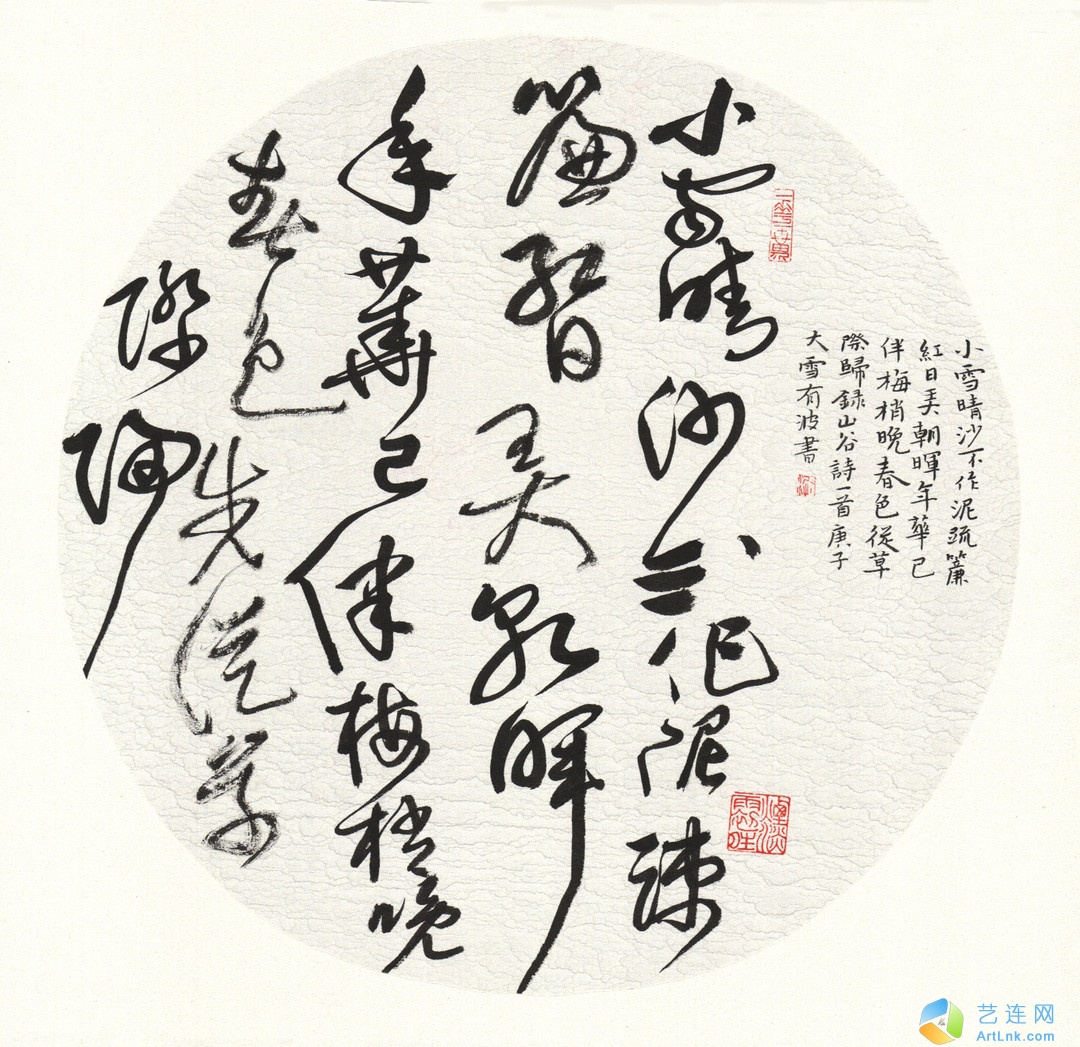 小雪晴沙不作泥疎
簾紅日弄朝暉
年華已伴梅梢晚
春色先從草
際歸
小雪晴沙不作泥疏簾
紅日弄朝暉年華已
伴梅梢晚春色從草
際歸録山谷詩一首庚子
大雪有波書
一花一世界
艺连网
ArtLnk.com